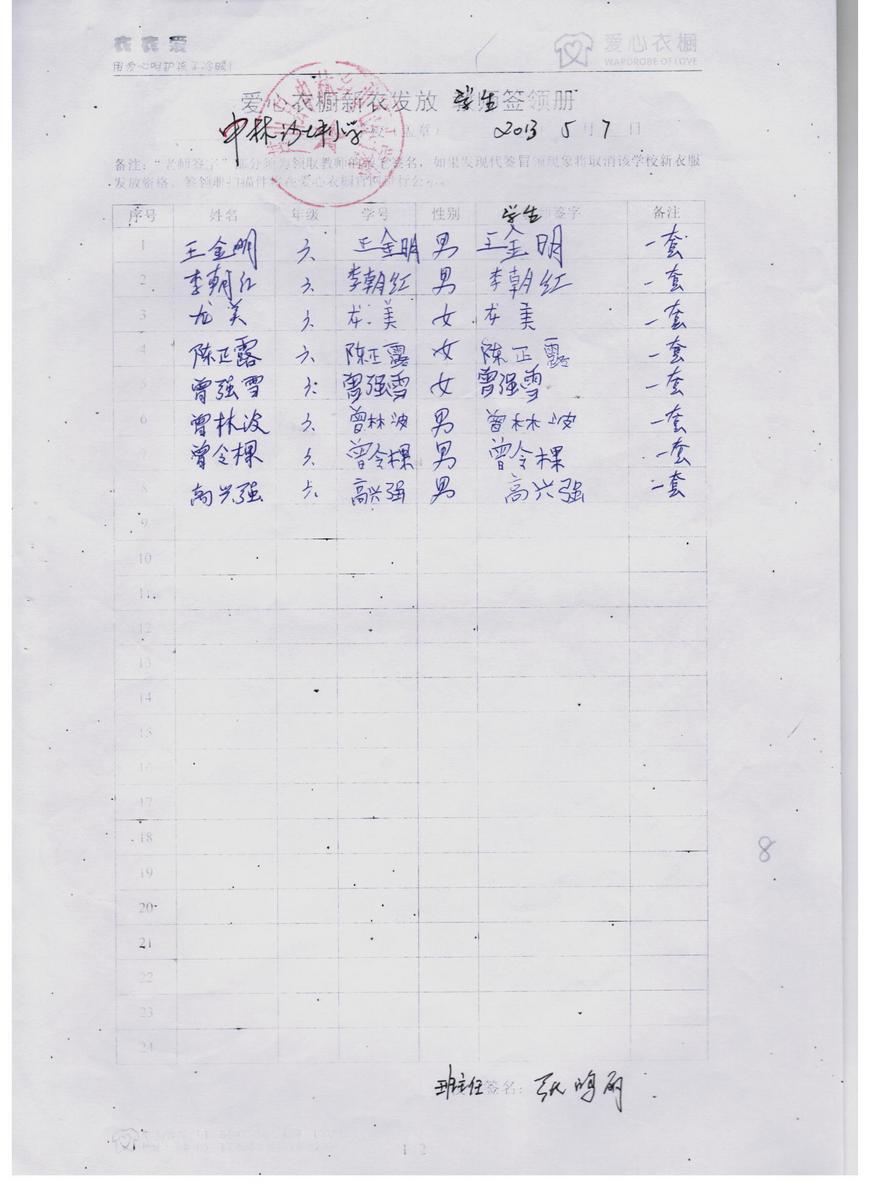 衣衣爱
用爱心呵护孩子冷暖!
爱心衣橱
WARDROBE OF LOVE
爱心衣橱新衣发放 学生签领册
中林沙坪小学 (盖章) 2013 5月7日
备注:“老师签字”部分须为领取教师亲笔签名,如果发现代签冒领现象将取消该学校新衣服
发放资格。签领册扫描件将在爱心衣橱官网进行公示。
序号 姓名 年级 学号 性别 学生签字 备注
1 王金明 六 王金明 男 王金明 一套
2 李朝红 六 李朝红 男 李朝红 一套
3 龙美 六 龙美 女 龙美 一套
4 陈正露 六 陈正露 女 陈正露 一套
5 曾强雪 六 曾强雪 女 曾强雪 一套
6 曾林波 六 曾林波 男 曾林波 一套
7 曾令棵 六 曾令棵 男 曾令棵 一套
8 高兴强 六 高兴强 男 高兴强 一套
9
10
11
12
13
14
15
16
17
18
8
19
20
21
22
23
24
班主任签名: 张鸣
1 2